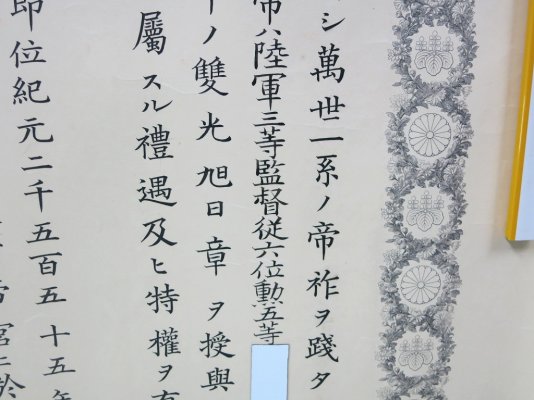 シ萬世一系ノ帝祚ヲ踐タ
帝ハ陸軍三等監督從六位勲五等
ノ雙光旭日章ヲ授與
屬スル禮遇及ヒ特權ヲ有
即位紀元二千五百五十五年
宮ニ於